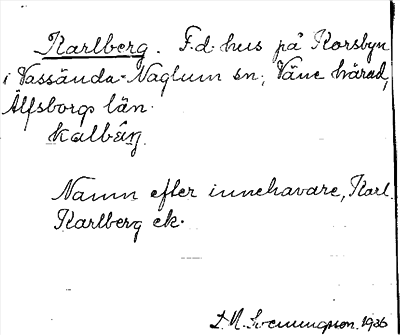 Karlberg. F.d. hus på Korsbyn
i Vassända-Naglum sn; Väne härad,
Älfsborgs län.
Namn efter innehavare, Karl
Karlberg ek.
1926